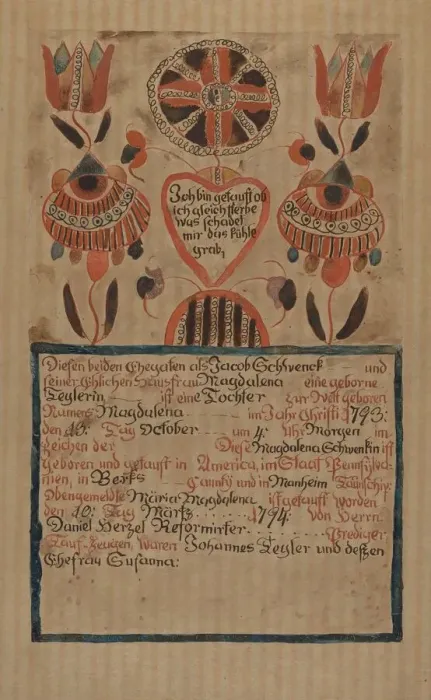 Ich bin getauft ob
ich gleich sterbe
was schadet
mir das kühle
grab,
Diesen beiden Ehegaten als Jacob Schwenck und
seiner Ehlichen Hausfrau Magdalena eine geborne
Zeylerin ist eine Tochter zur Welt geboren
Namens Magdalena im Jahr Christi 1793:
den 13: Tag October um 4: Uhr Morgen im
zeichen der Diese Magdalena Schwenkin ist
geboren und getauft in America, im Staat Pennsylva-
nien, in Berks Caunty und in Manheim Taunschip:
Obengemelte Maria Magdalena ist getauft worden
den 10: Tag Märtz 1794: von Herrn.
Daniel Herzel Reformirter Prediger
Tauf-zeugen, waren Johannes Zeyler und deßen
Ehefrau Susanna: